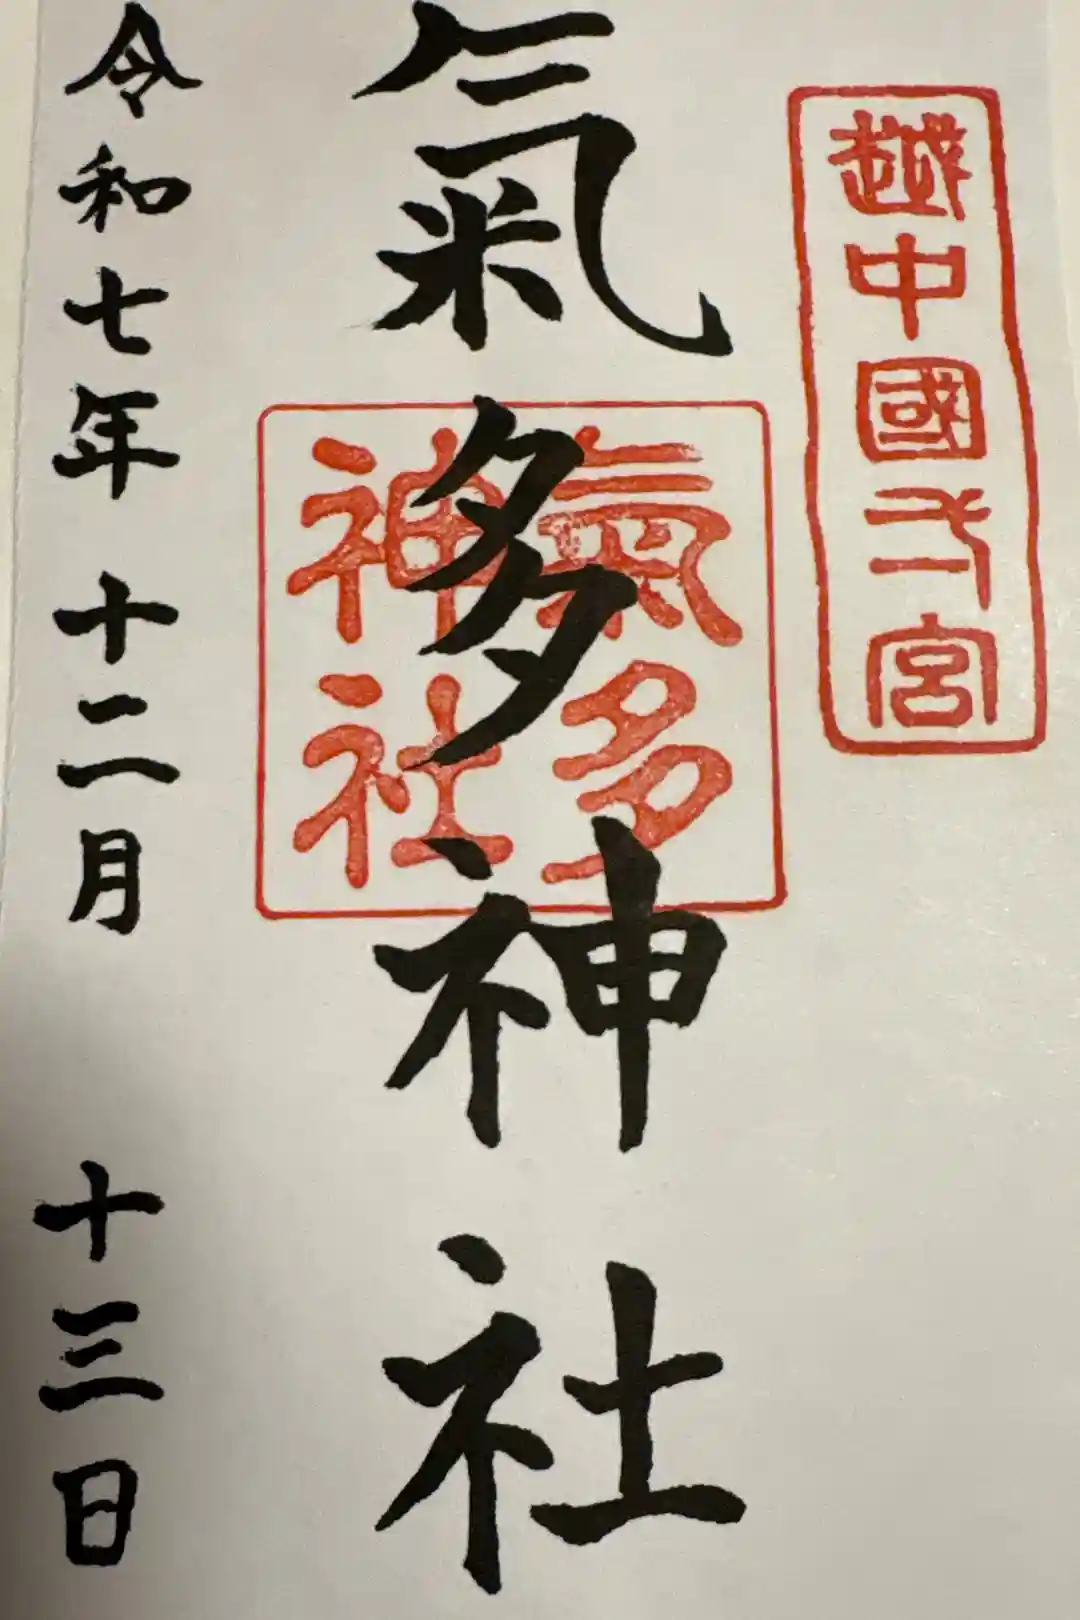 越中國弌宮
氣多神社
氣多
神社
令和七年 十二月 十三日